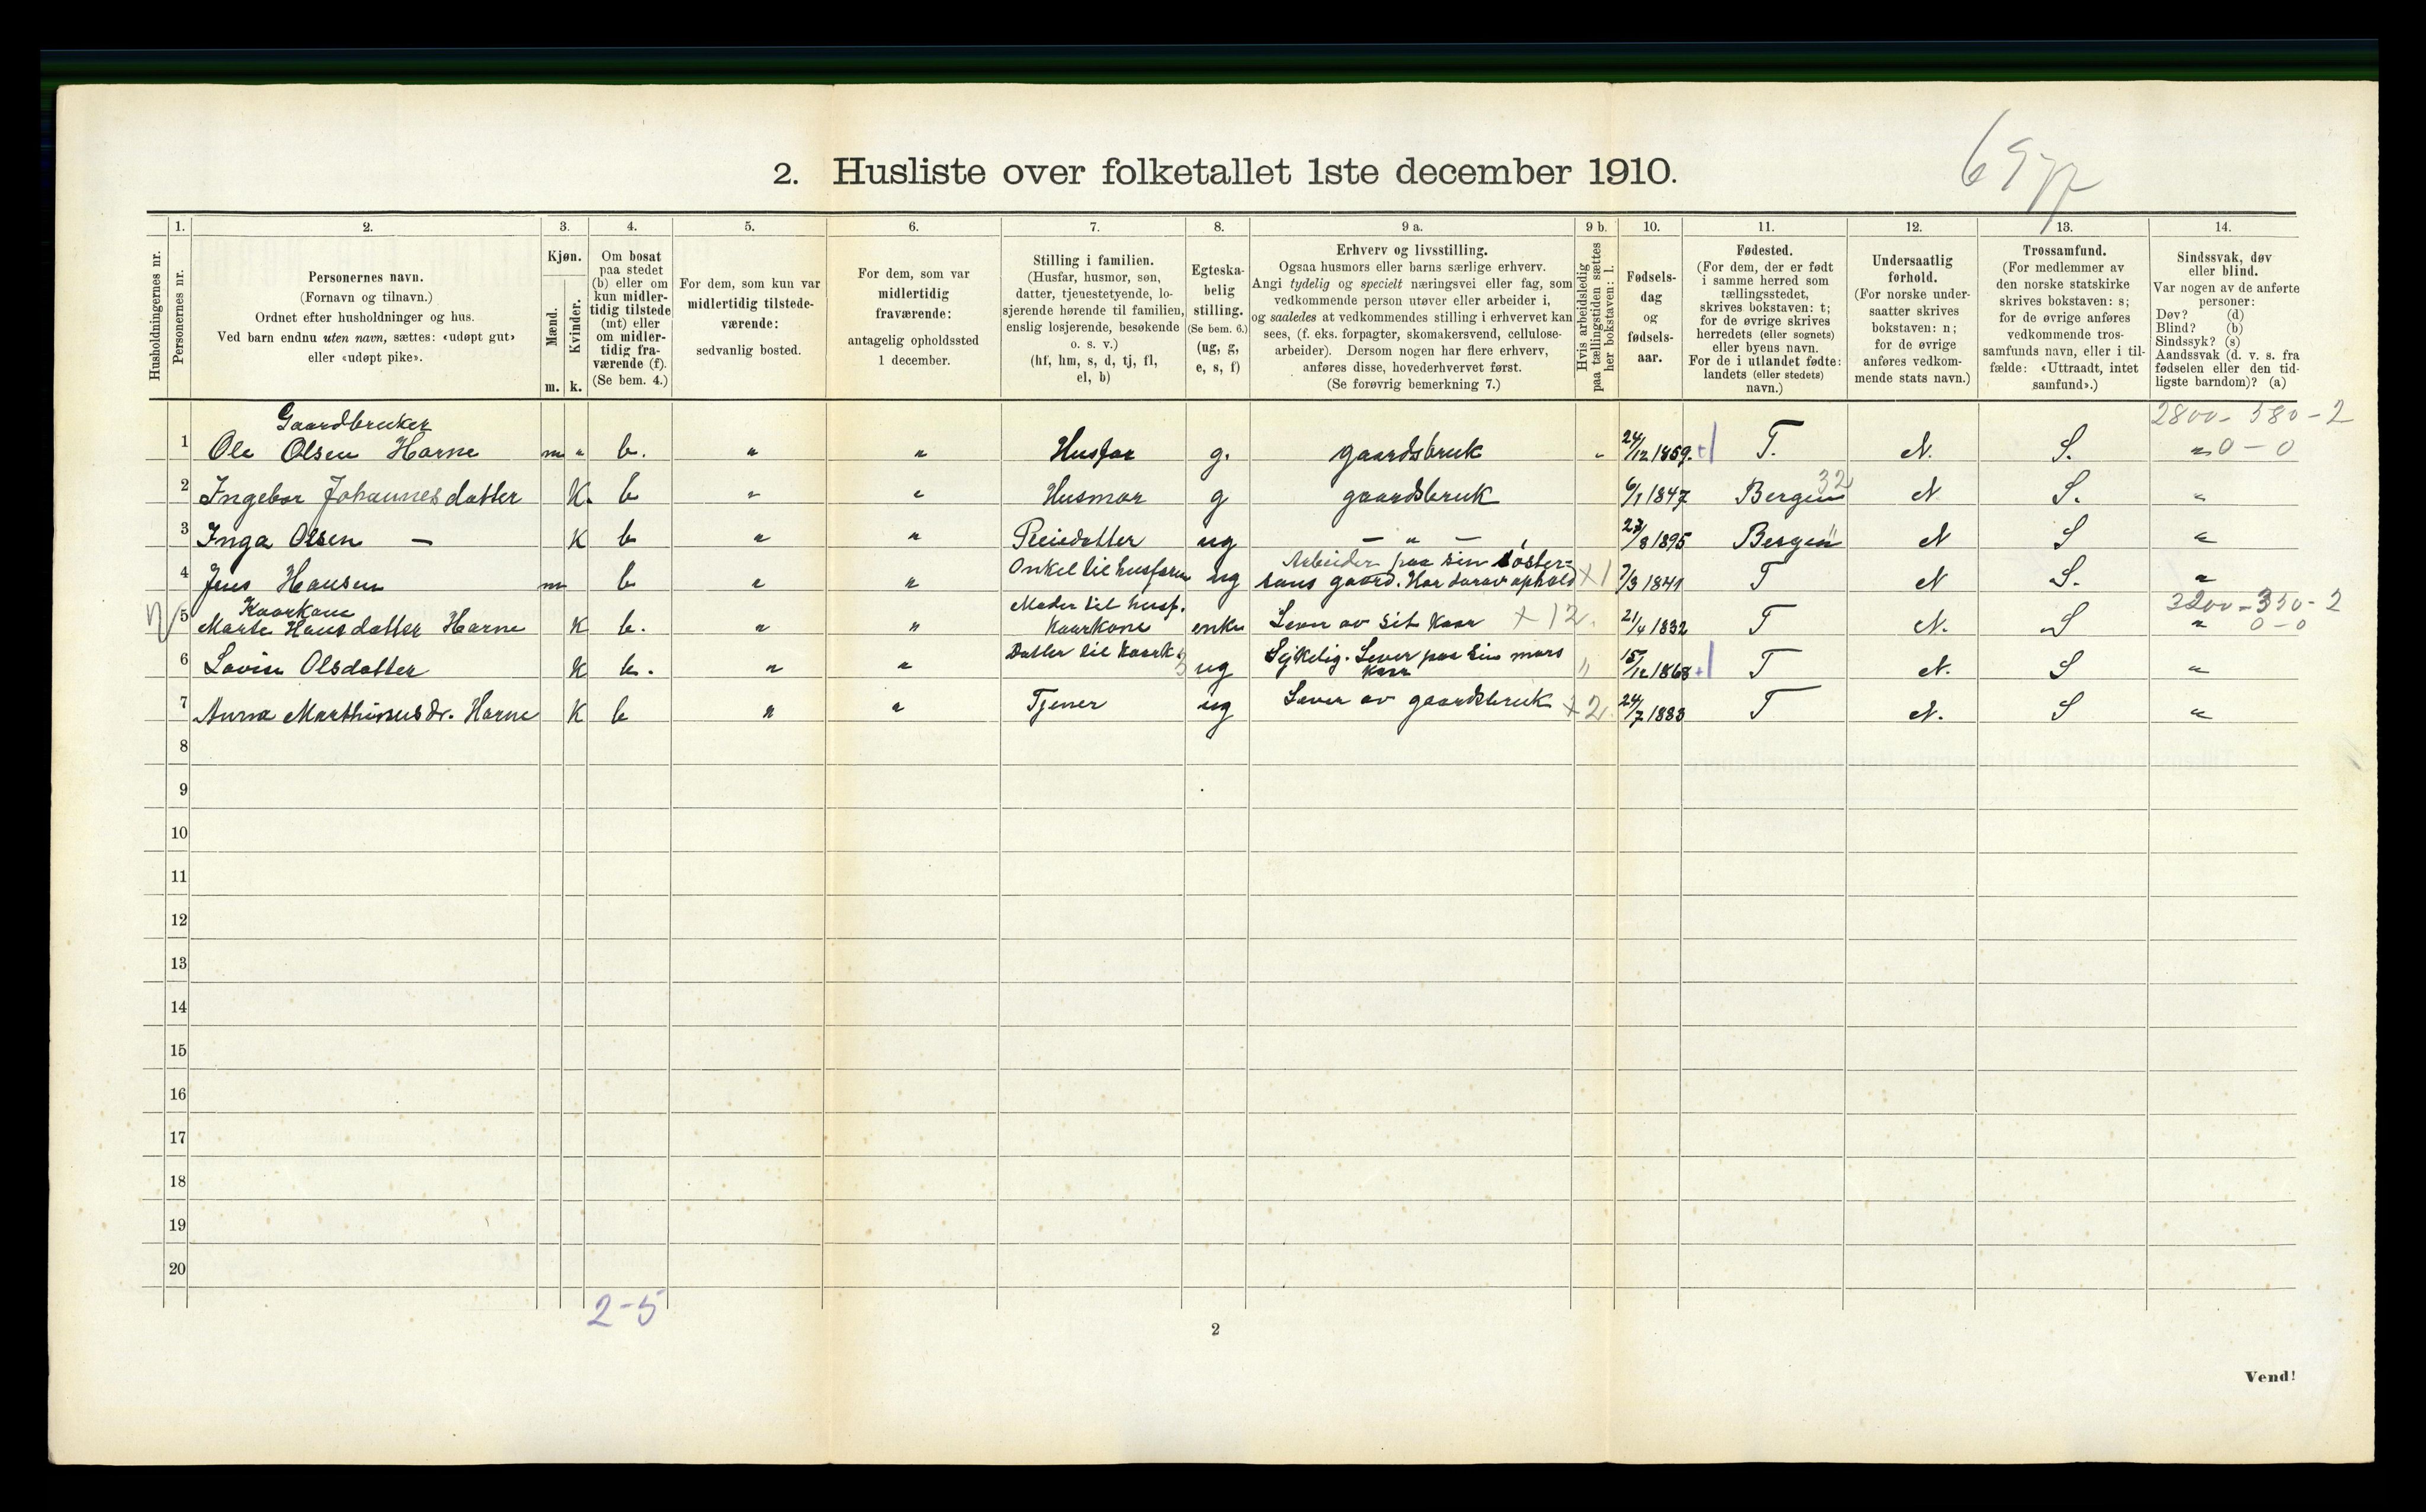 2. Husliste over folketallet 1ste december 1910.
Husholdningernes nr.
1.
Personernes nr.
2.
Personernes navn.
(Fornavn og tilnavn.)
Ordnet efter husholdninger og hus.
Ved barn endnu uten navn, sættes: «udøpt gut»
eller «udøpt pike».
3.
Kjøn.
Mænd.
Kvinder.
m. k.
4.
Om bosat
paa stedet
(b) eller om
kun midler-
tidig tilstede
(mt) eller
om midler-
tidig fra-
værende (f).
(Se bem. 4.)
5.
For dem, som kun var
midlertidig tilstede-
værende:
sedvanlig bosted.
6.
For dem, som var
midlertidig
fraværende:
antagelig opholdssted
1 december.
7.
Stilling i familien.
(Husfar, husmor, søn,
datter, tjenestetyende, lo-
sjerende hørende til familien,
enslig losjerende, besøkende
o. s. v.)
(hf, hm, s, d, tj, fl,
el, b)
8.
Egteska-
belig
stilling.
(Se bem. 6.)
(ug, g,
e, s, f)
9 a.
Erhverv og livsstilling.
Ogsaa husmors eller barns særlige erhverv.
Angi tydelig og specielt næringsvei eller fag, som
vedkommende person utøver eller arbeider i,
og saaledes at vedkommendes stilling i erhvervet kan
sees, (f. eks. forpagter, skomakersvend, cellulose-
arbeider). Dersom nogen har flere erhverv,
anføres disse, hovederhvervet først.
(Se forøvrig bemerkning 7.)
9 b.
Hvis arbeidsledig
paa tællingstiden sættes
her bokstaven: l.
10.
Fødsels-
dag
og
fødsels-
aar.
11.
Fødested.
(For dem, der er født
i samme herred som
tællingsstedet,
skrives bokstaven: t;
for de øvrige skrives
herredets (eller sognets)
eller byens navn.
For de i utlandet fødte:
landets (eller stedets)
navn.)
12.
Undersaatlig
forhold.
(For norske under-
saatter skrives
bokstaven: n;
for de øvrige
anføres vedkom-
mende stats navn.)
13.
Trossamfund.
(For medlemmer av
den norske statskirke
skrives bokstaven: s;
for de øvrige anføres
vedkommende tros-
samfunds navn, eller i til-
fælde: «Uttraadt, intet
samfund».)
14.
Sindssvak, døv
eller blind.
Var nogen av de anførte
personer:
Døv? (d)
Blind? (b)
Sindssyk? (s)
Aandssvak (d. v. s. fra
fødselen eller den tid-
ligste barndom)? (a)
Gaardbruker 2800 - 580 - 2
1 Ole Olsen Harne m " b. " " Husfar g. gaardsbruk " 24/12 1859. T. N. S. " 0 - 0
2 Ingebor Johannesdatter K. b " " Husmor g gaardsbruk 6/1 1847 Bergen 32 N S. "
3 Inga Olsen — K b " " Pleiedatter ug — " — 23/8 1895 Bergen " N S "
4 Jens Hansen m b " " Onkel til husfaren ug Arbeider paa sin søster-
søns gaard. Har derav ophold x 1 7/3 1841 T N S. "
Kaarkone Moder til husf. 3200 - 350 - 2
5 Marte Hansdatter Harne K b. " " Kaarkone enke Lever av sit kaar x 12. 21/4 1832 T N. S " 0 - 0
6 Lovise Olsdatter K b. " " Datter til kaark. 3 ug Sykelig. Lever paa sin mors
kaar " 15/12 1868 T N. S "
7 Anna Marthinusdr. Harne K b " " Tjener ug Lever av gaardsbruk x 2 24/7 1883 T N. S "
8
9
10
11
12
13
14
15
16
17
18
19
20
2-5
2
Vend!